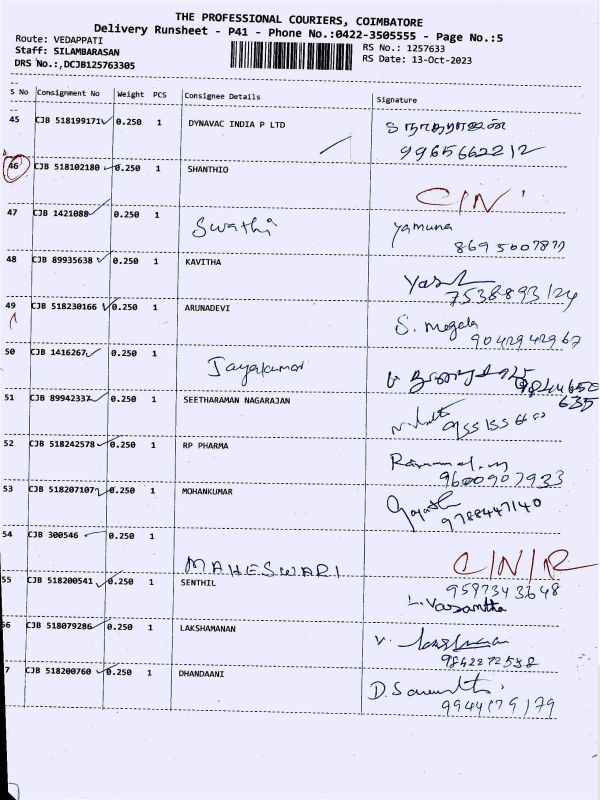 THE PROFESSIONAL COURIERS, COIMBATORE
Delivery Runsheet - P41 - Phone No.:0422-3505555 - Page No.:5
Route: VEDAPPATI RS No.: 1257633
Staff: SILAMBARASAN RS Date: 13-Oct-2023
DRS No.:,DCJB125763305
S No Consignment No Weight PCS Consignee Details Signature
45 CJB 518199171 0.250 1 DYNAVAC INDIA P LTD
9965662212
46 CJB 518102180 0.250 1 SHANTHIO
C/N
47 CJB 1421088 0.250 1 Swathi yamuna
8695007877
48 CJB 89935638 0.250 1 KAVITHA
7538893124
49 CJB 518230166 0.250 1 ARUNADEVI S. Megala
9042942967
50 CJB 1416267 0.250 1 Jayakumar
635
51 CJB 89942337 0.250 1 SEETHARAMAN NAGARAJAN
52 CJB 518242578 0.250 1 RP PHARMA
9600907933
53 CJB 518207107 0.250 1 MOHANKUMAR
9788447140
54 CJB 300546 0.250 1 MAHESWARI C/N/R
55 CJB 518200541 0.250 1 SENTHIL 9597343648
L. Vasantha
56 CJB 518079286 0.250 1 LAKSHAMANAN V.
9842272538
7 CJB 518200760 0.250 1 DHANDAANI
9944179179